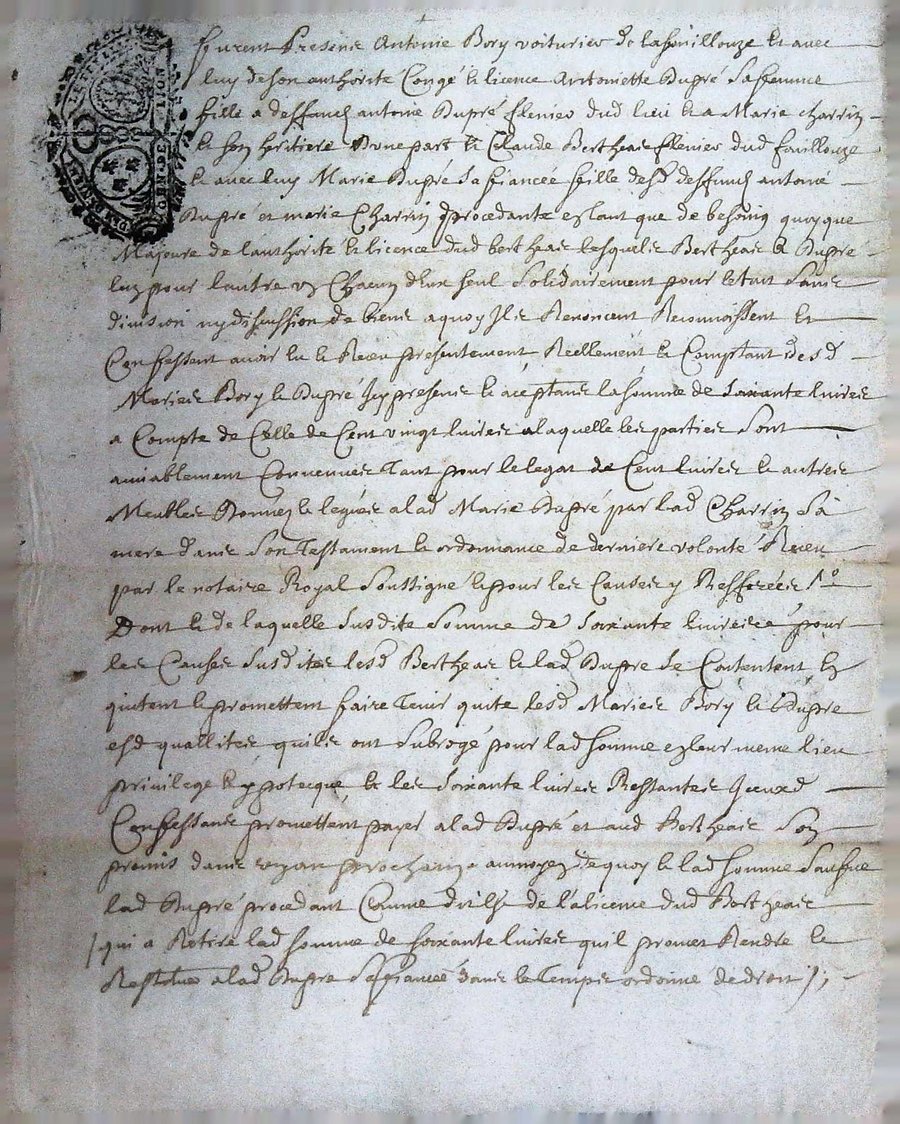 furent Presens Antoine Bory voiturier de lafouillouze et avec
luy de son authorité Congé et licence Antoinette Dupré sa femme
fille a deffunct antoine Dupré dud lieu et a Marie charrin
et son heritiere Dune part et Claude Bertheas dud fouillouze
et avec luy Marie Dupré sa fiancée fille desd deffunct antoine
Dupré et marie Charrin procedante estant que de besoing quoyque
Majeure de lauthorité et licence dud bertheas lesquels Bertheas et Dupré
lun pour lautre un Chacun deux seul solidairement pour letout sans
division ny discussion de biens aquoy Ils Renoncent Reconnoissent et
Confessent avoir eu et Receu presentement Reellement et Comptant desd
Maries Bory et Dupré Icy presens et aceptans la somme de soixante livres
a Compte de Celle de Cent vingt livres a laquelle les parties sont
amiablement Convenues Tant pour le legat de Cent livres et autres
Meubles Donnez et leguées a lad Marie Dupré par lad Charrin sa
mere dans son Testament et ordonnance de derniere volonté Receu
par le notaire Royal soussigné et pour les Causes y Refferées
Dont et de laquelle susdite somme de soixante livres et pour
les Causes susdites lesd Bertheas et lad Dupré se Contentent et
quitent et promettent faire Tenir quite lesd Maries Bory et Dupré
esd quallites quils ont subrogé pour lad somme en leur meme lieu
privilege et ypotecque, et les soixante livres Restantes Iceux d
Confessans promettent payer a lad Dupré et aud Bertheas son
promis dans un an prochain annoyez de quoy et lad somme
lad Dupré procedant Comme dit est de la licence dud Bertheas
qui a Retiré lad somme de soixante livres quil promet Rendre et
Restituer a lad Dupré sa fiancée dans le Temps ordonné de droit